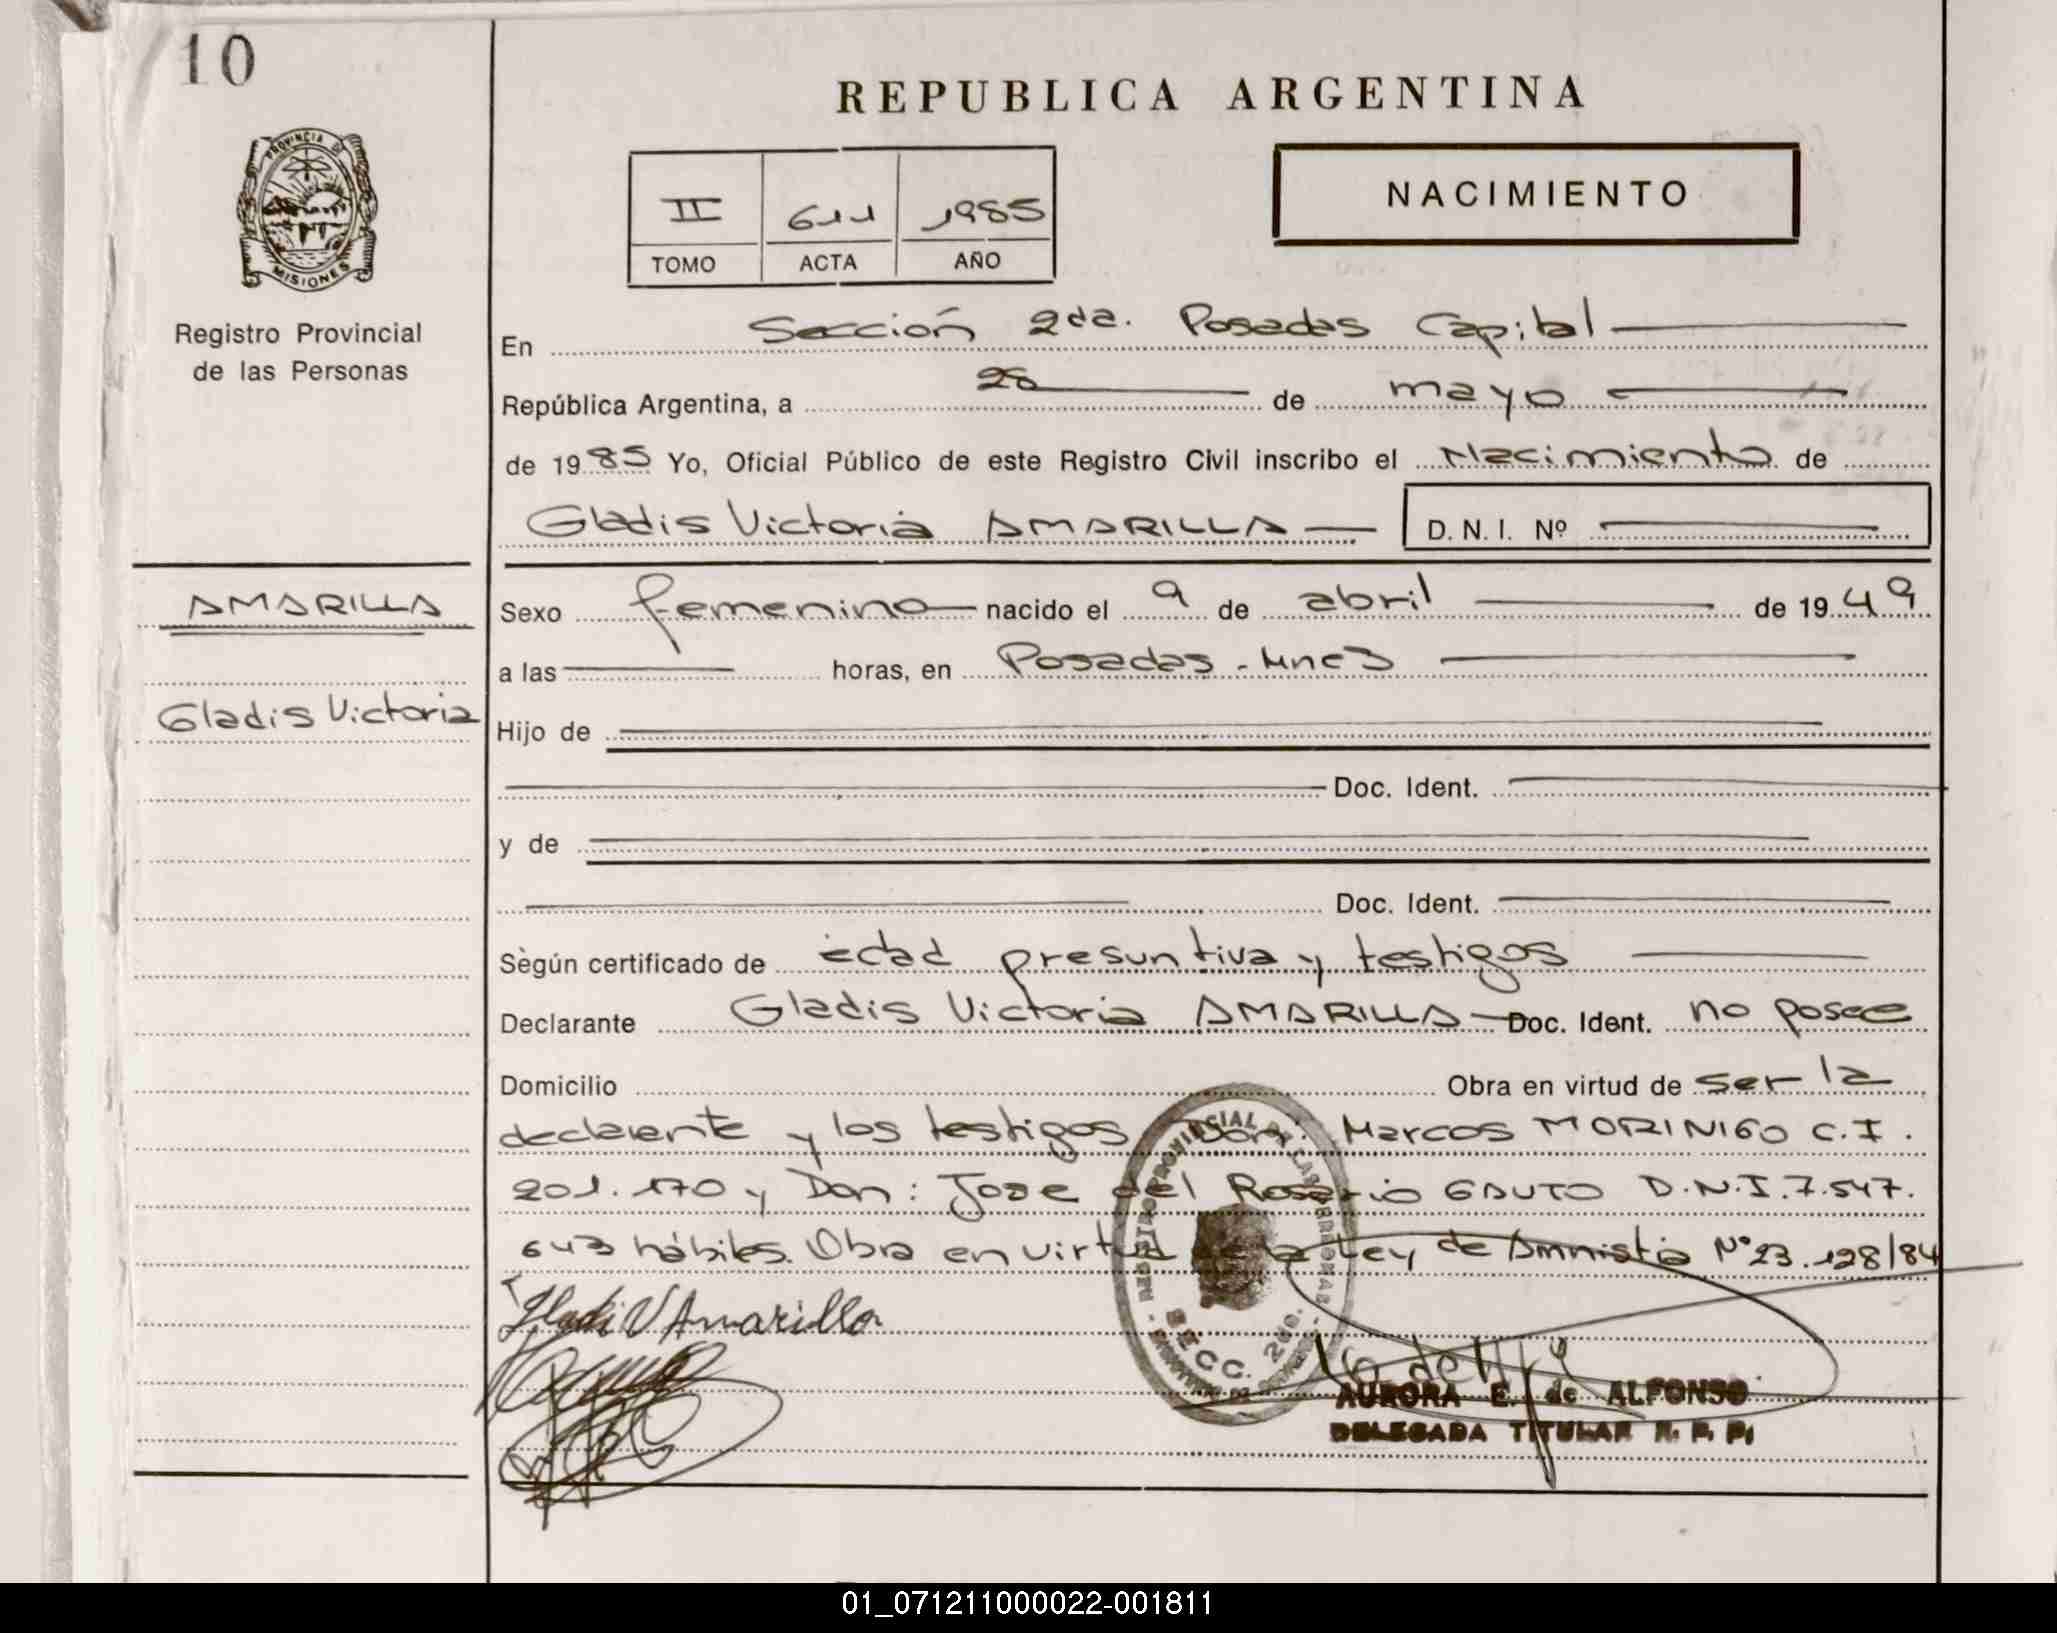 10
REPUBLICA ARGENTINA
PROVINCIA DE
MISIONES
II 611 1985
TOMO ACTA AÑO
NACIMIENTO
Registro Provincial
de las Personas
En Sección 2da. Posadas Capital
República Argentina, a 28 de mayo
de 1985 Yo, Oficial Público de este Registro Civil inscribo el Nacimiento de
Gladis Victoria AMARILLA D.N.I. Nº
AMARILLA
Gladis Victoria
Sexo femenino nacido el 9 de abril de 1949
a las horas, en Posadas - Mnes
Hijo de
Doc. Ident.
y de
Doc. Ident.
Según certificado de edad presuntiva y testigos
Declarante Gladis Victoria AMARILLA Doc. Ident. no posee
Domicilio Obra en virtud de ser la
declarente y los testigos Don: Marcos MORINIGO C.I.
201.170 y Don: Jose del Rosario GAUTO D.N.I. 7.547.
643 hábiles. Obra en virtud de la Ley de Amnistia Nº 23.128/84
Gladi V Amarilla
SECC. 2da.
AURORA E. de ALFONSO
DELEGADA TITULAR R. P. P.
01_071211000022-001811